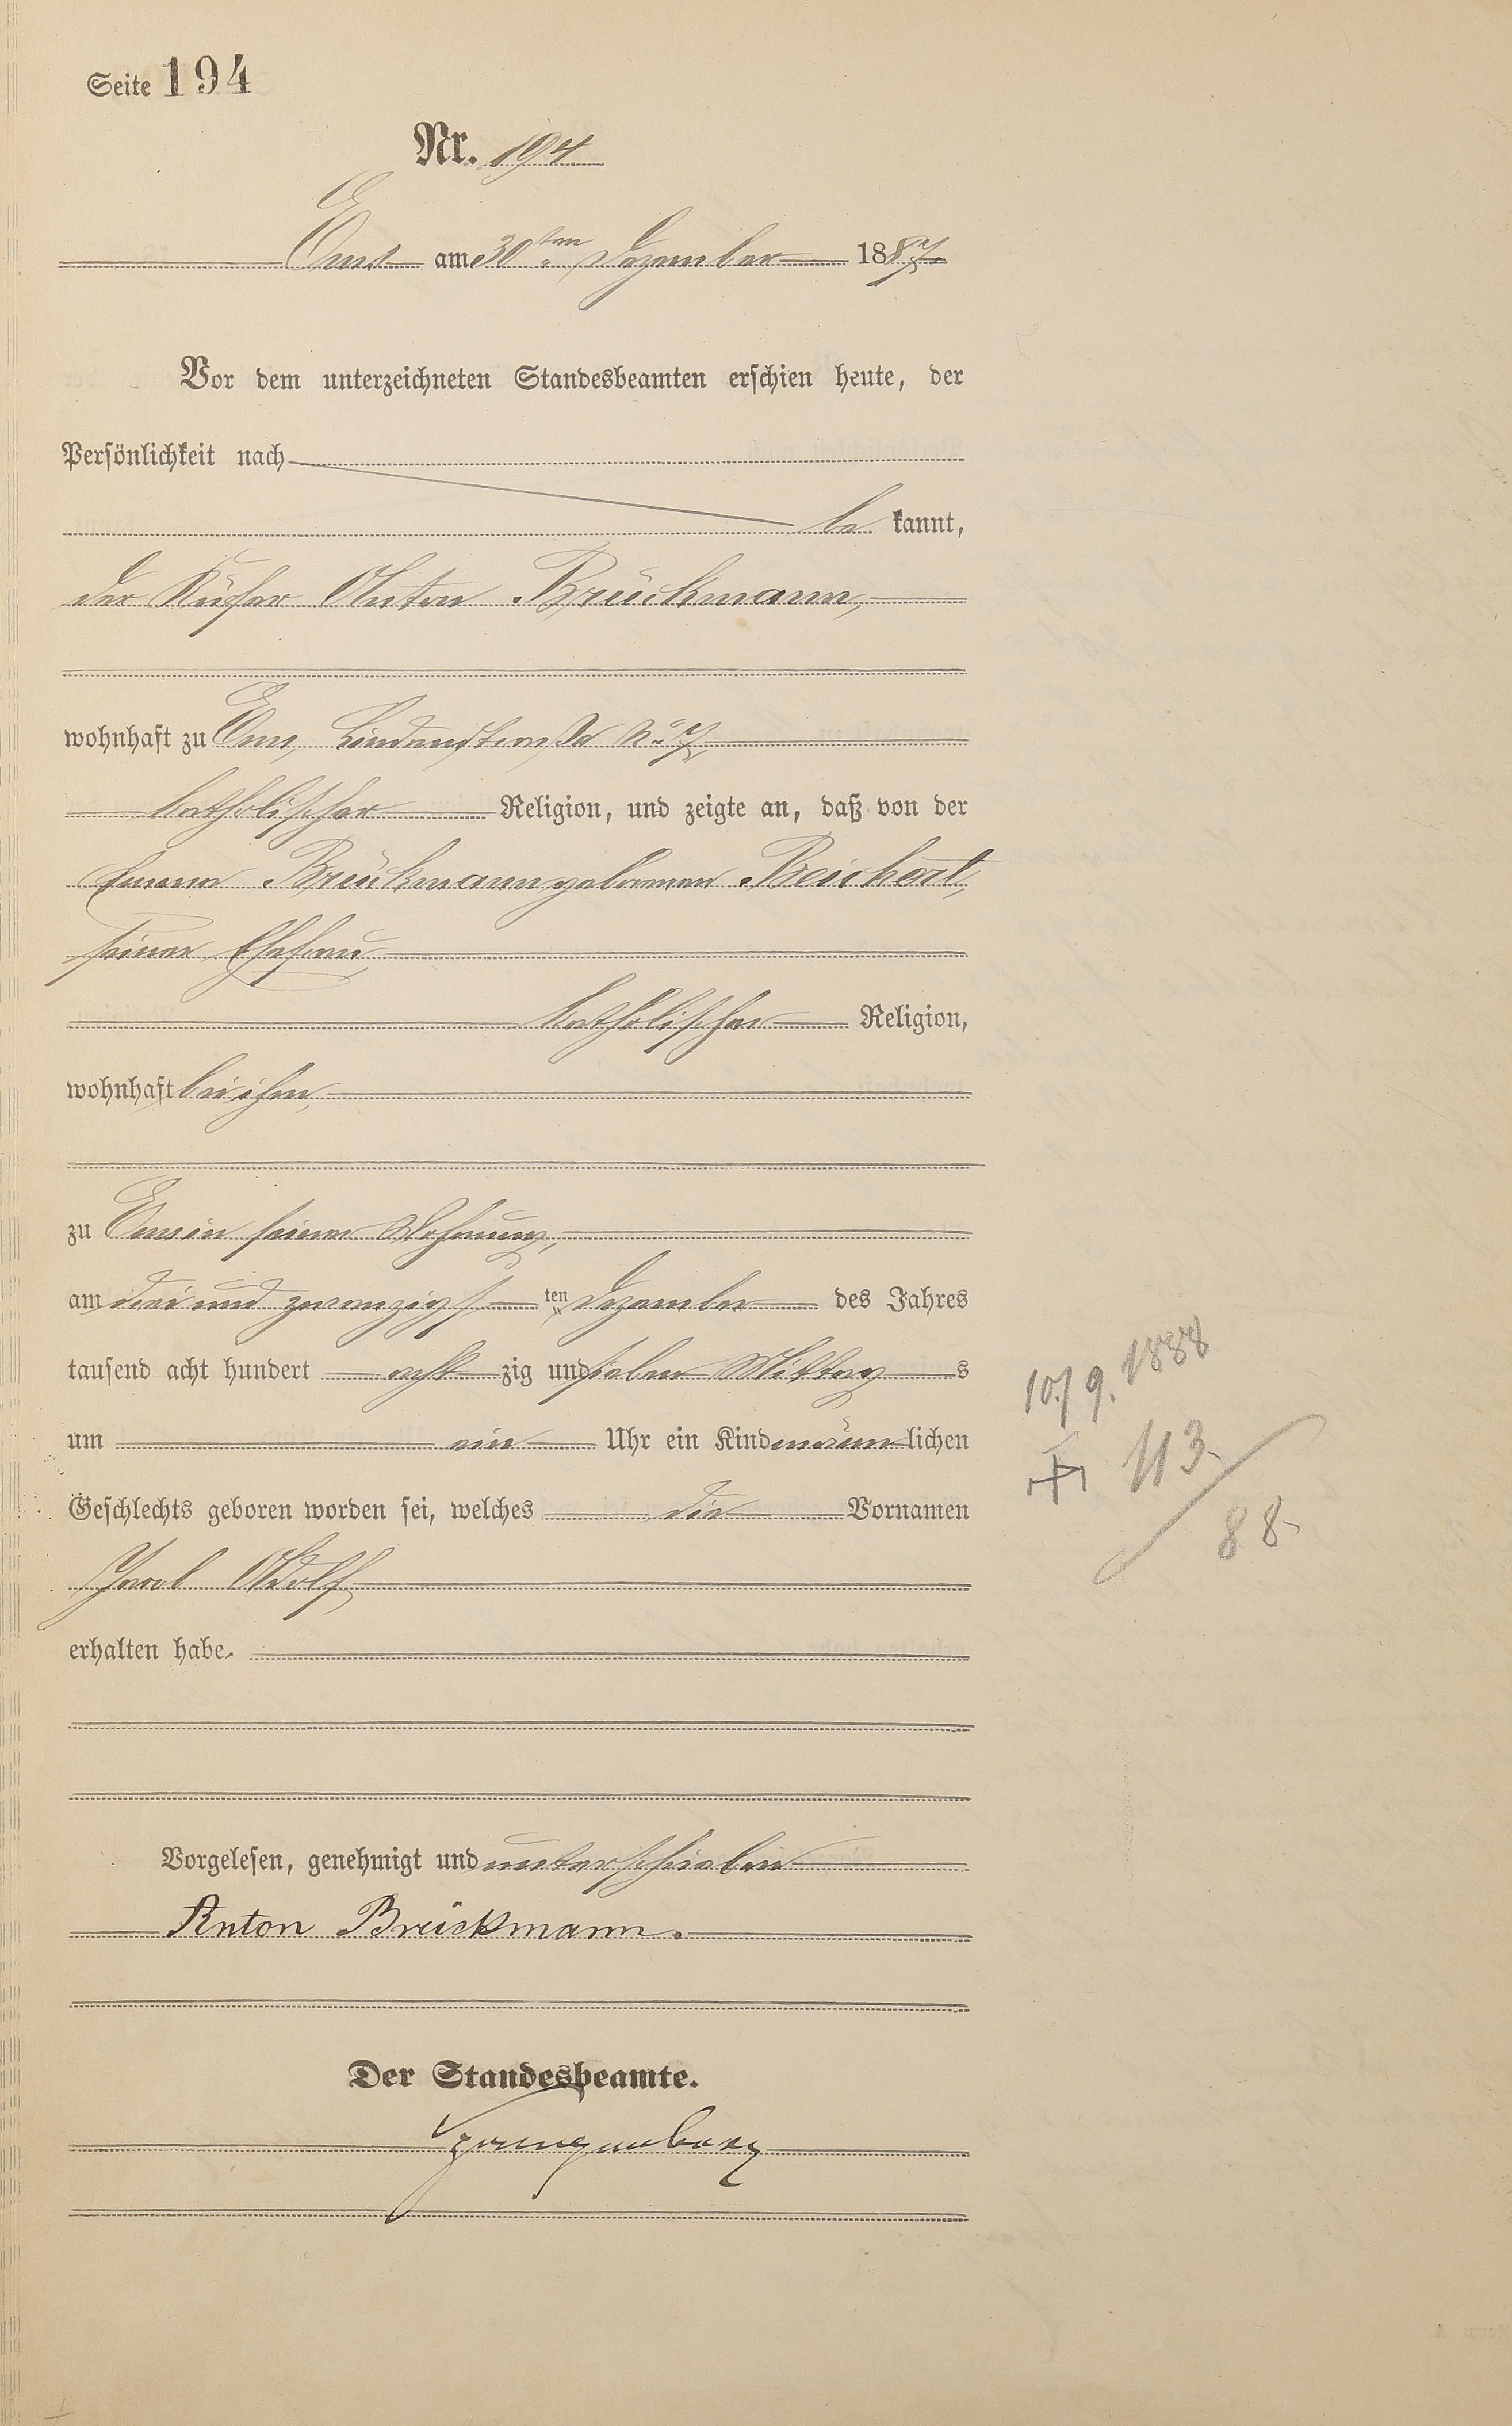 Seite 194
Nr. 194
Ems am 30ten Dezember 1887.
Vor dem unterzeichneten Standesbeamten erschien heute, der
Persönlichkeit nach
be kannt,
der Küfer Anton Brückmann,
wohnhaft zu Ems, Lindenstraße No 7,
katholischer Religion, und zeigte an, daß von der
Emma Brückmann geborenen Reichert,
seiner Ehefrau,
katholischer Religion,
wohnhaft bei ihm,
zu Ems in seiner Wohnung,
am drei und zwanzigsten Dezember des Jahres
tausend acht hundert acht zig und sieben Mittags
um ein Uhr ein Kind männlichen
Geschlechts geboren worden sei, welches die Vornamen
Jacob Adolf
erhalten habe.
10./9. 1888
† 113
88
Vorgelesen, genehmigt und unterschrieben
Anton Brückmann.
Der Standesbeamte.